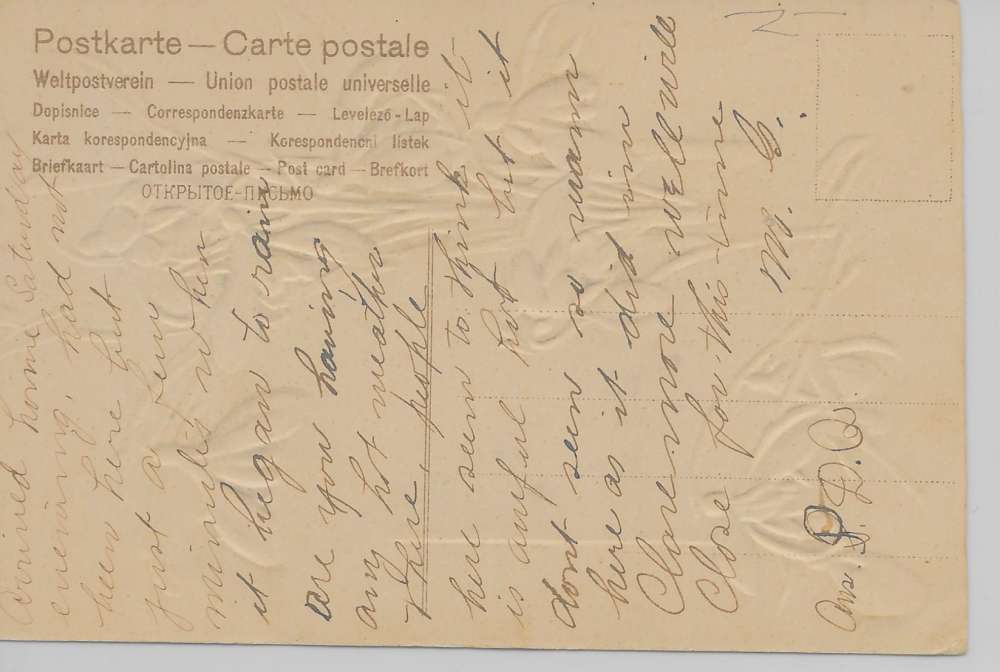 Postkarte — Carte postale
Weltpostverein — Union postale universelle
Dopisnice — Correspondenzkarte — Levelező-Lap
Karta korespondencyjna — Korespondenčni listek
Briefkaart — Cartolina postale — Post card — Brefkort
ОТКРЫТОЕ-ПИСЬМО
Arrived home Saturday
evening, had not
been here but
just a few
minutes when
it began to rain
are you having
any hot weather
there, people
here seem to think it
is awful hot but it
dont seem so warm
here as it did in
Claremore well will
Close for this time
M. C.
Ans. P.D.Q.